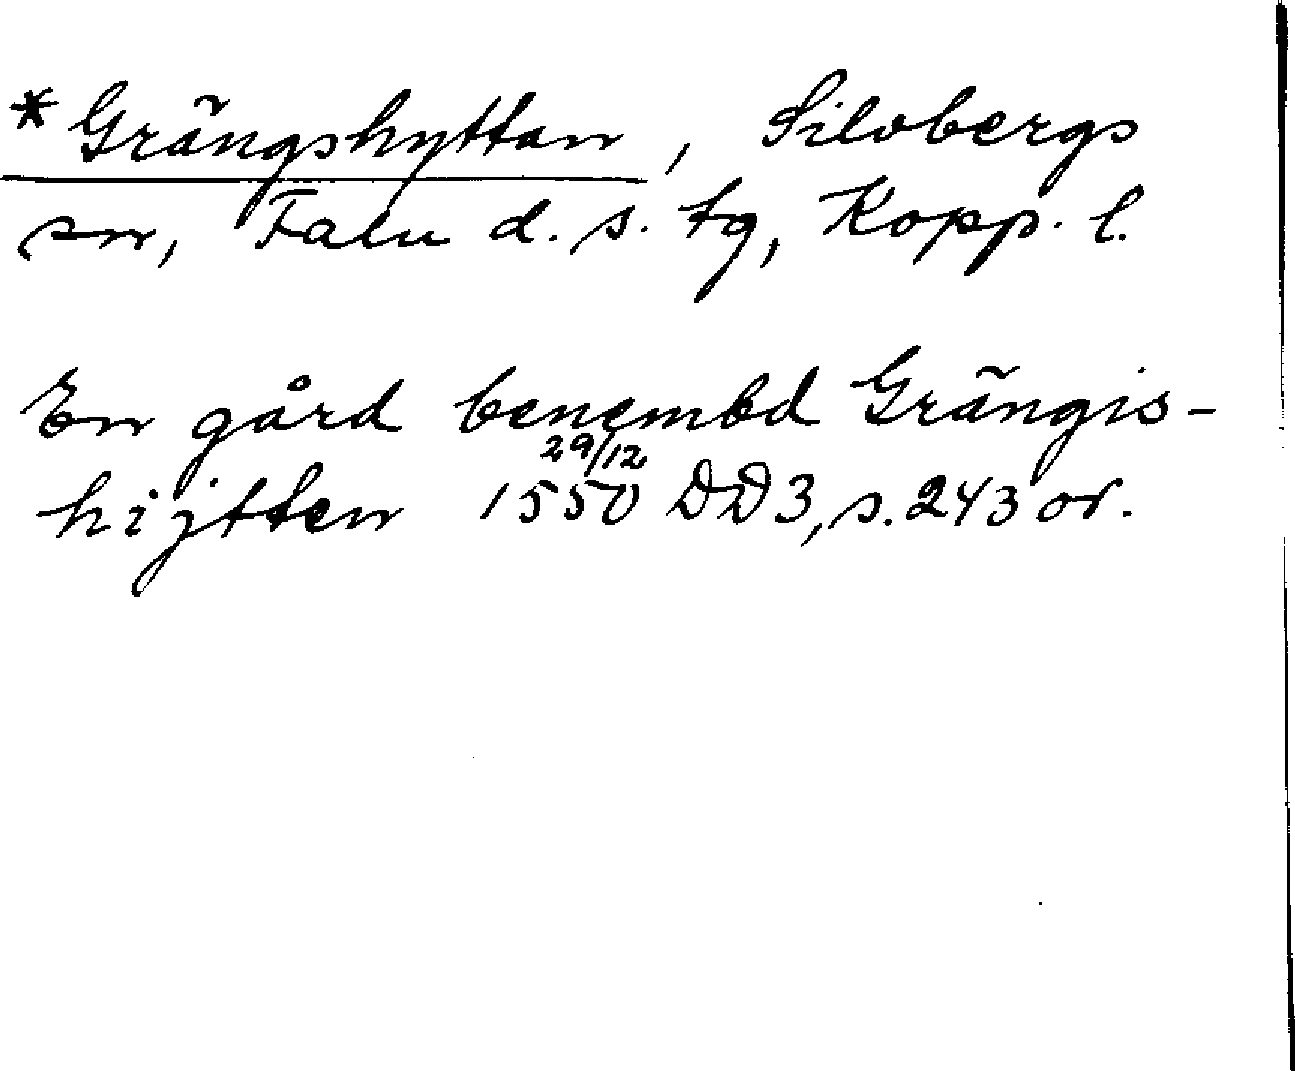 *Grängshyttan, Silvbergs
sn, Falu d. s. tg, Kopp. l.
En gård benembd Grängis-
hijtten 1550 29/12 DD3, s. 243 or.